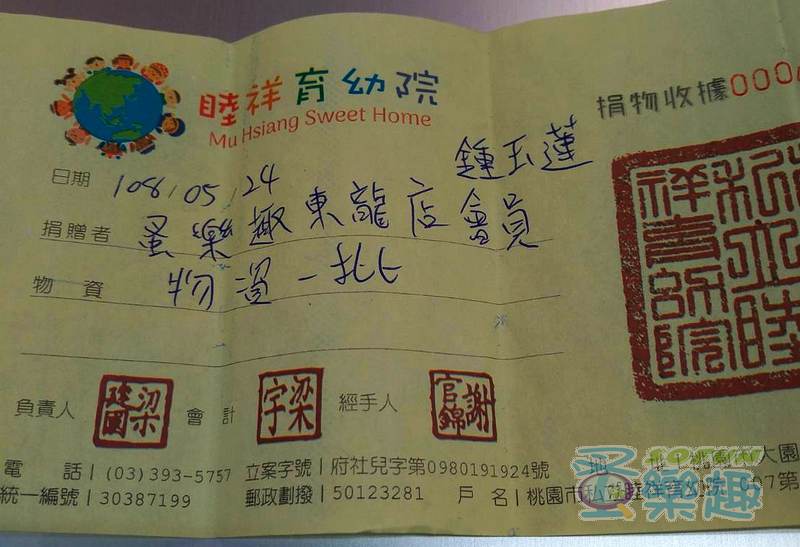 睦祥育幼院
Mu Hsiang Sweet Home
捐物收據000
日期 108/05/24 鍾玉蓮
捐贈者 蛋樂趣東龍店會員
物資 物資一批
私立睦祥育幼院
負責人 梁建國 會計 梁宇 經手人 謝官錦
電話|(03)393-5757 立案字號|府社兒字第0980191924號 地址|桃園市大園
統一編號|30387199 郵政劃撥|50123281 戶名|桃園市私立睦祥育幼院 007第
蛋樂趣